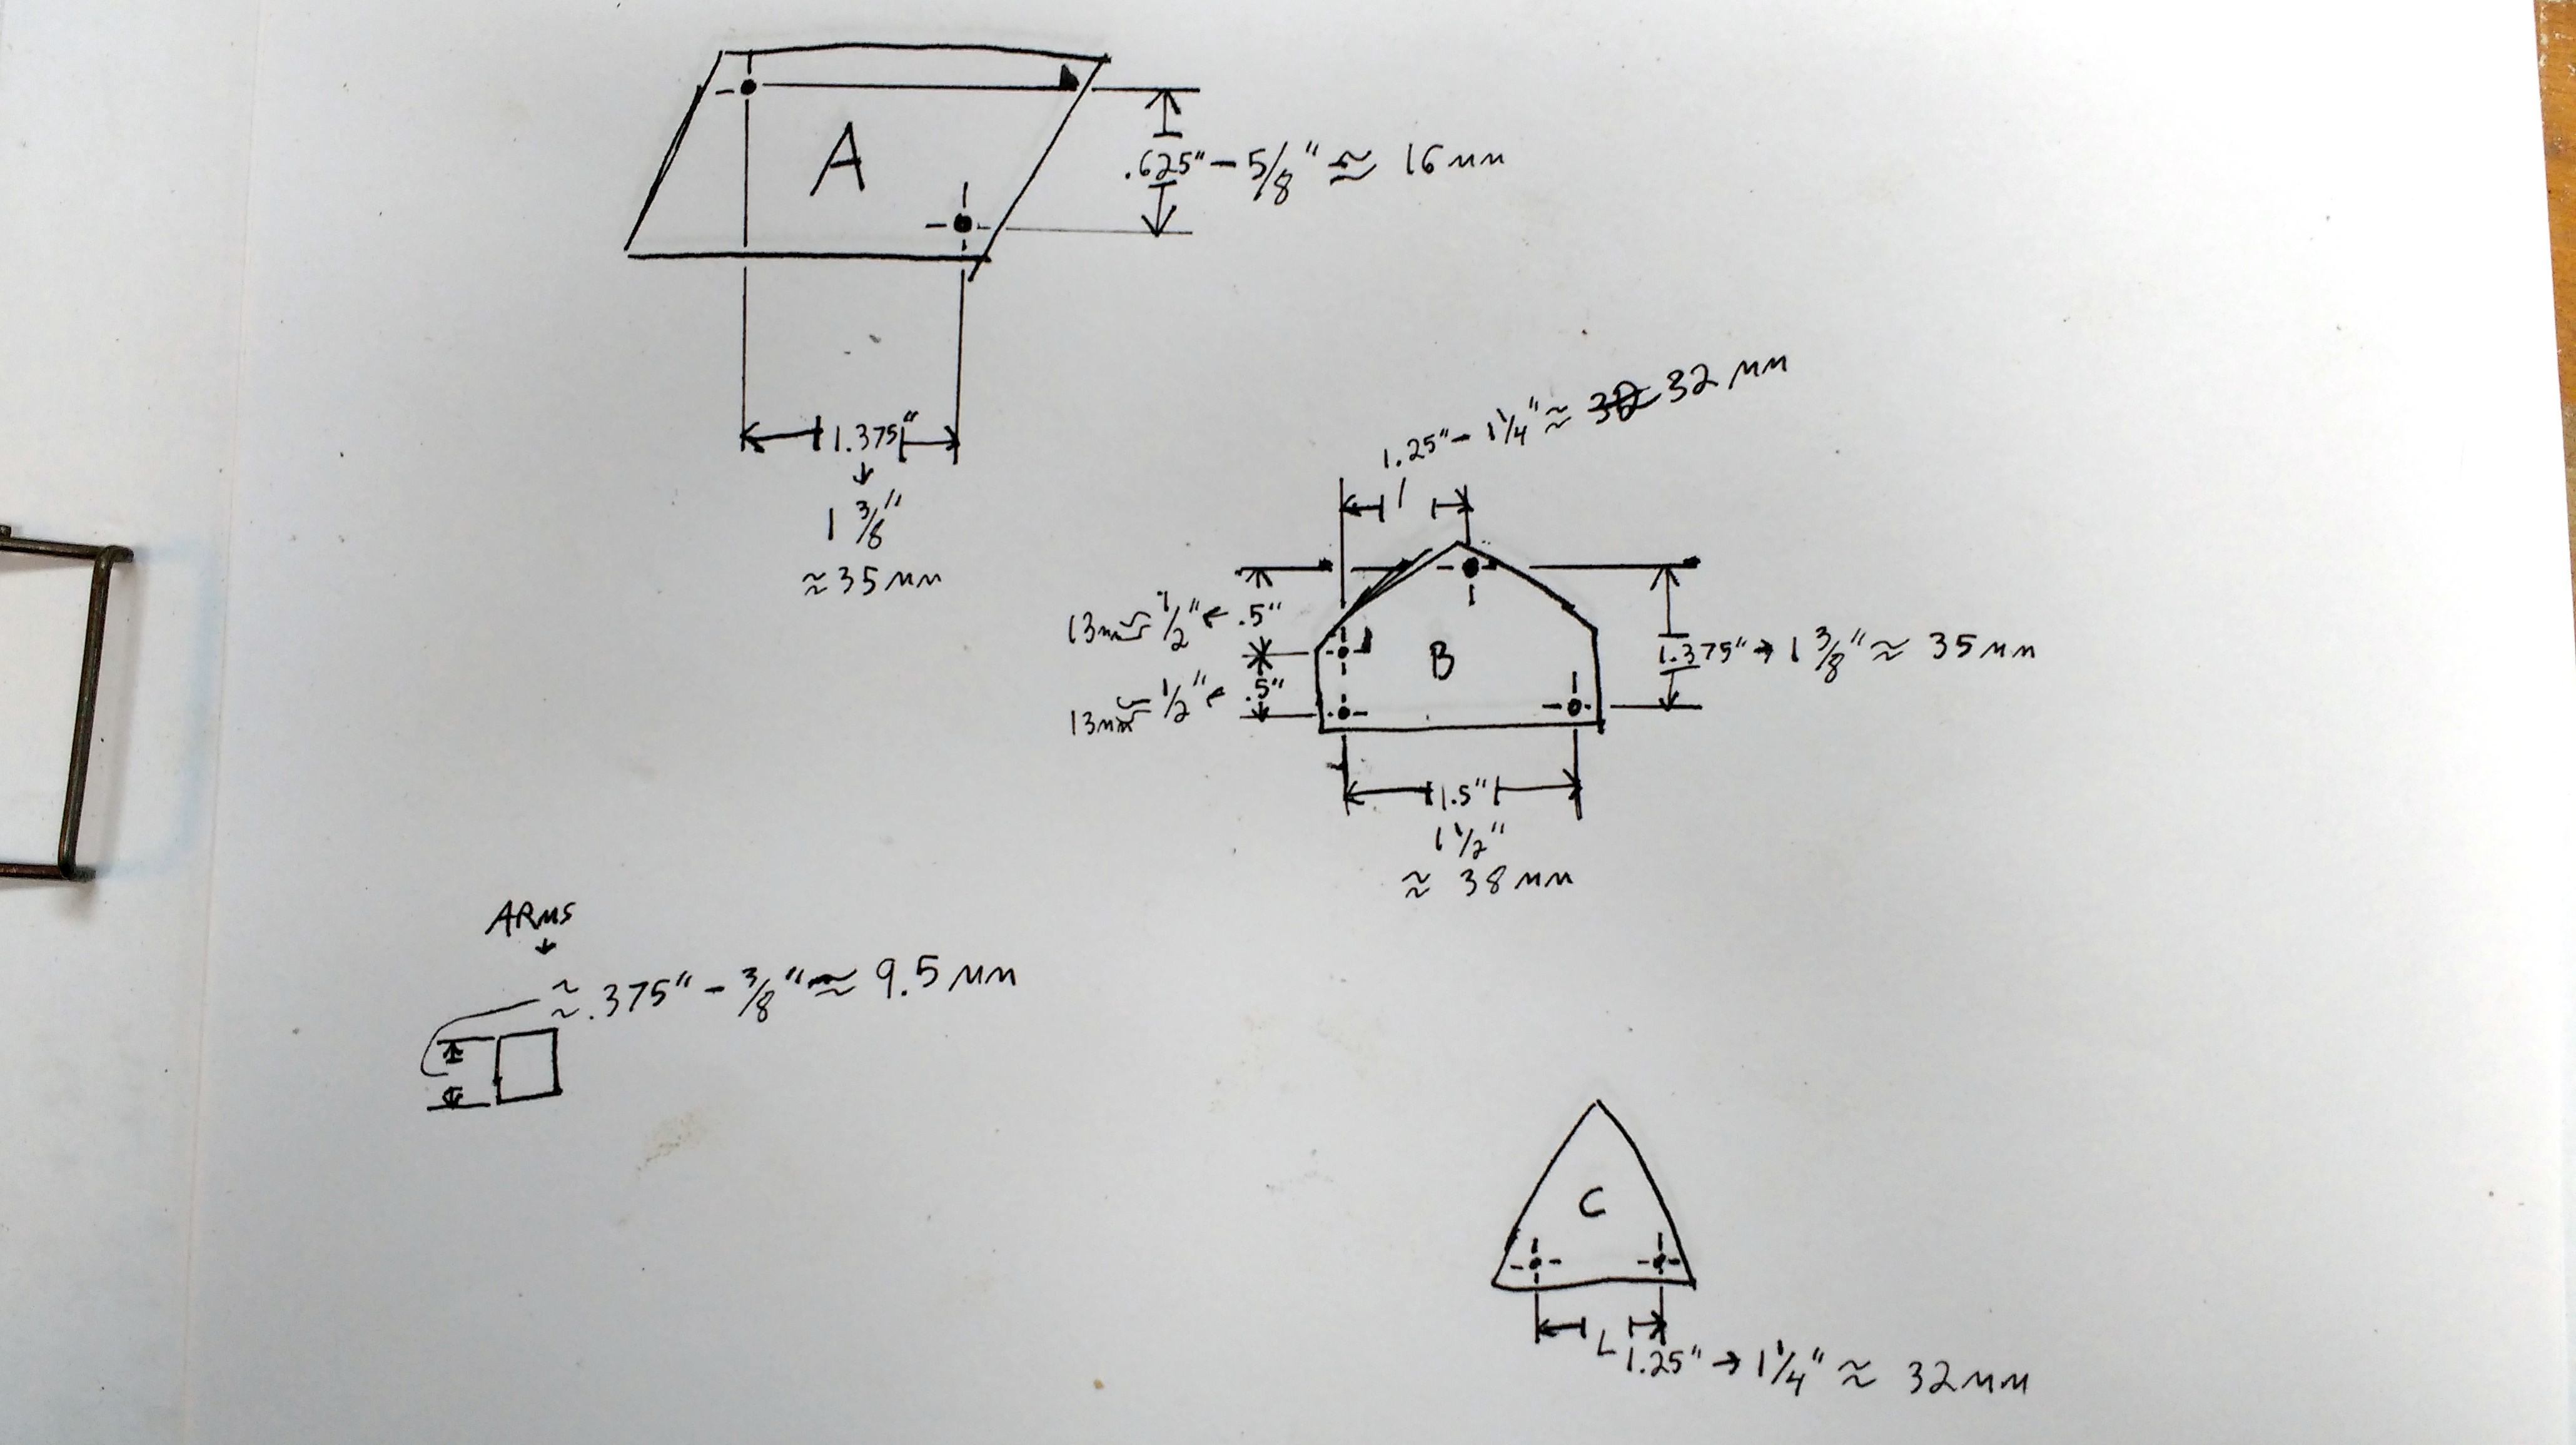 A
.625" – 5/8" ≈ 16 mm
1.375"
1 3/8"
≈ 35 mm
1.25" – 1 1/4" ≈ 32 mm
13mm ≈ 1/2" ← .5"
B
1.375" → 1 3/8" ≈ 35 mm
13mm ≈ 1/2" ← .5"
1.5"
1 1/2"
≈ 38 mm
ARMS
≈ .375" – 3/8" ≈ 9.5 mm
C
1.25" → 1 1/4" ≈ 32 mm